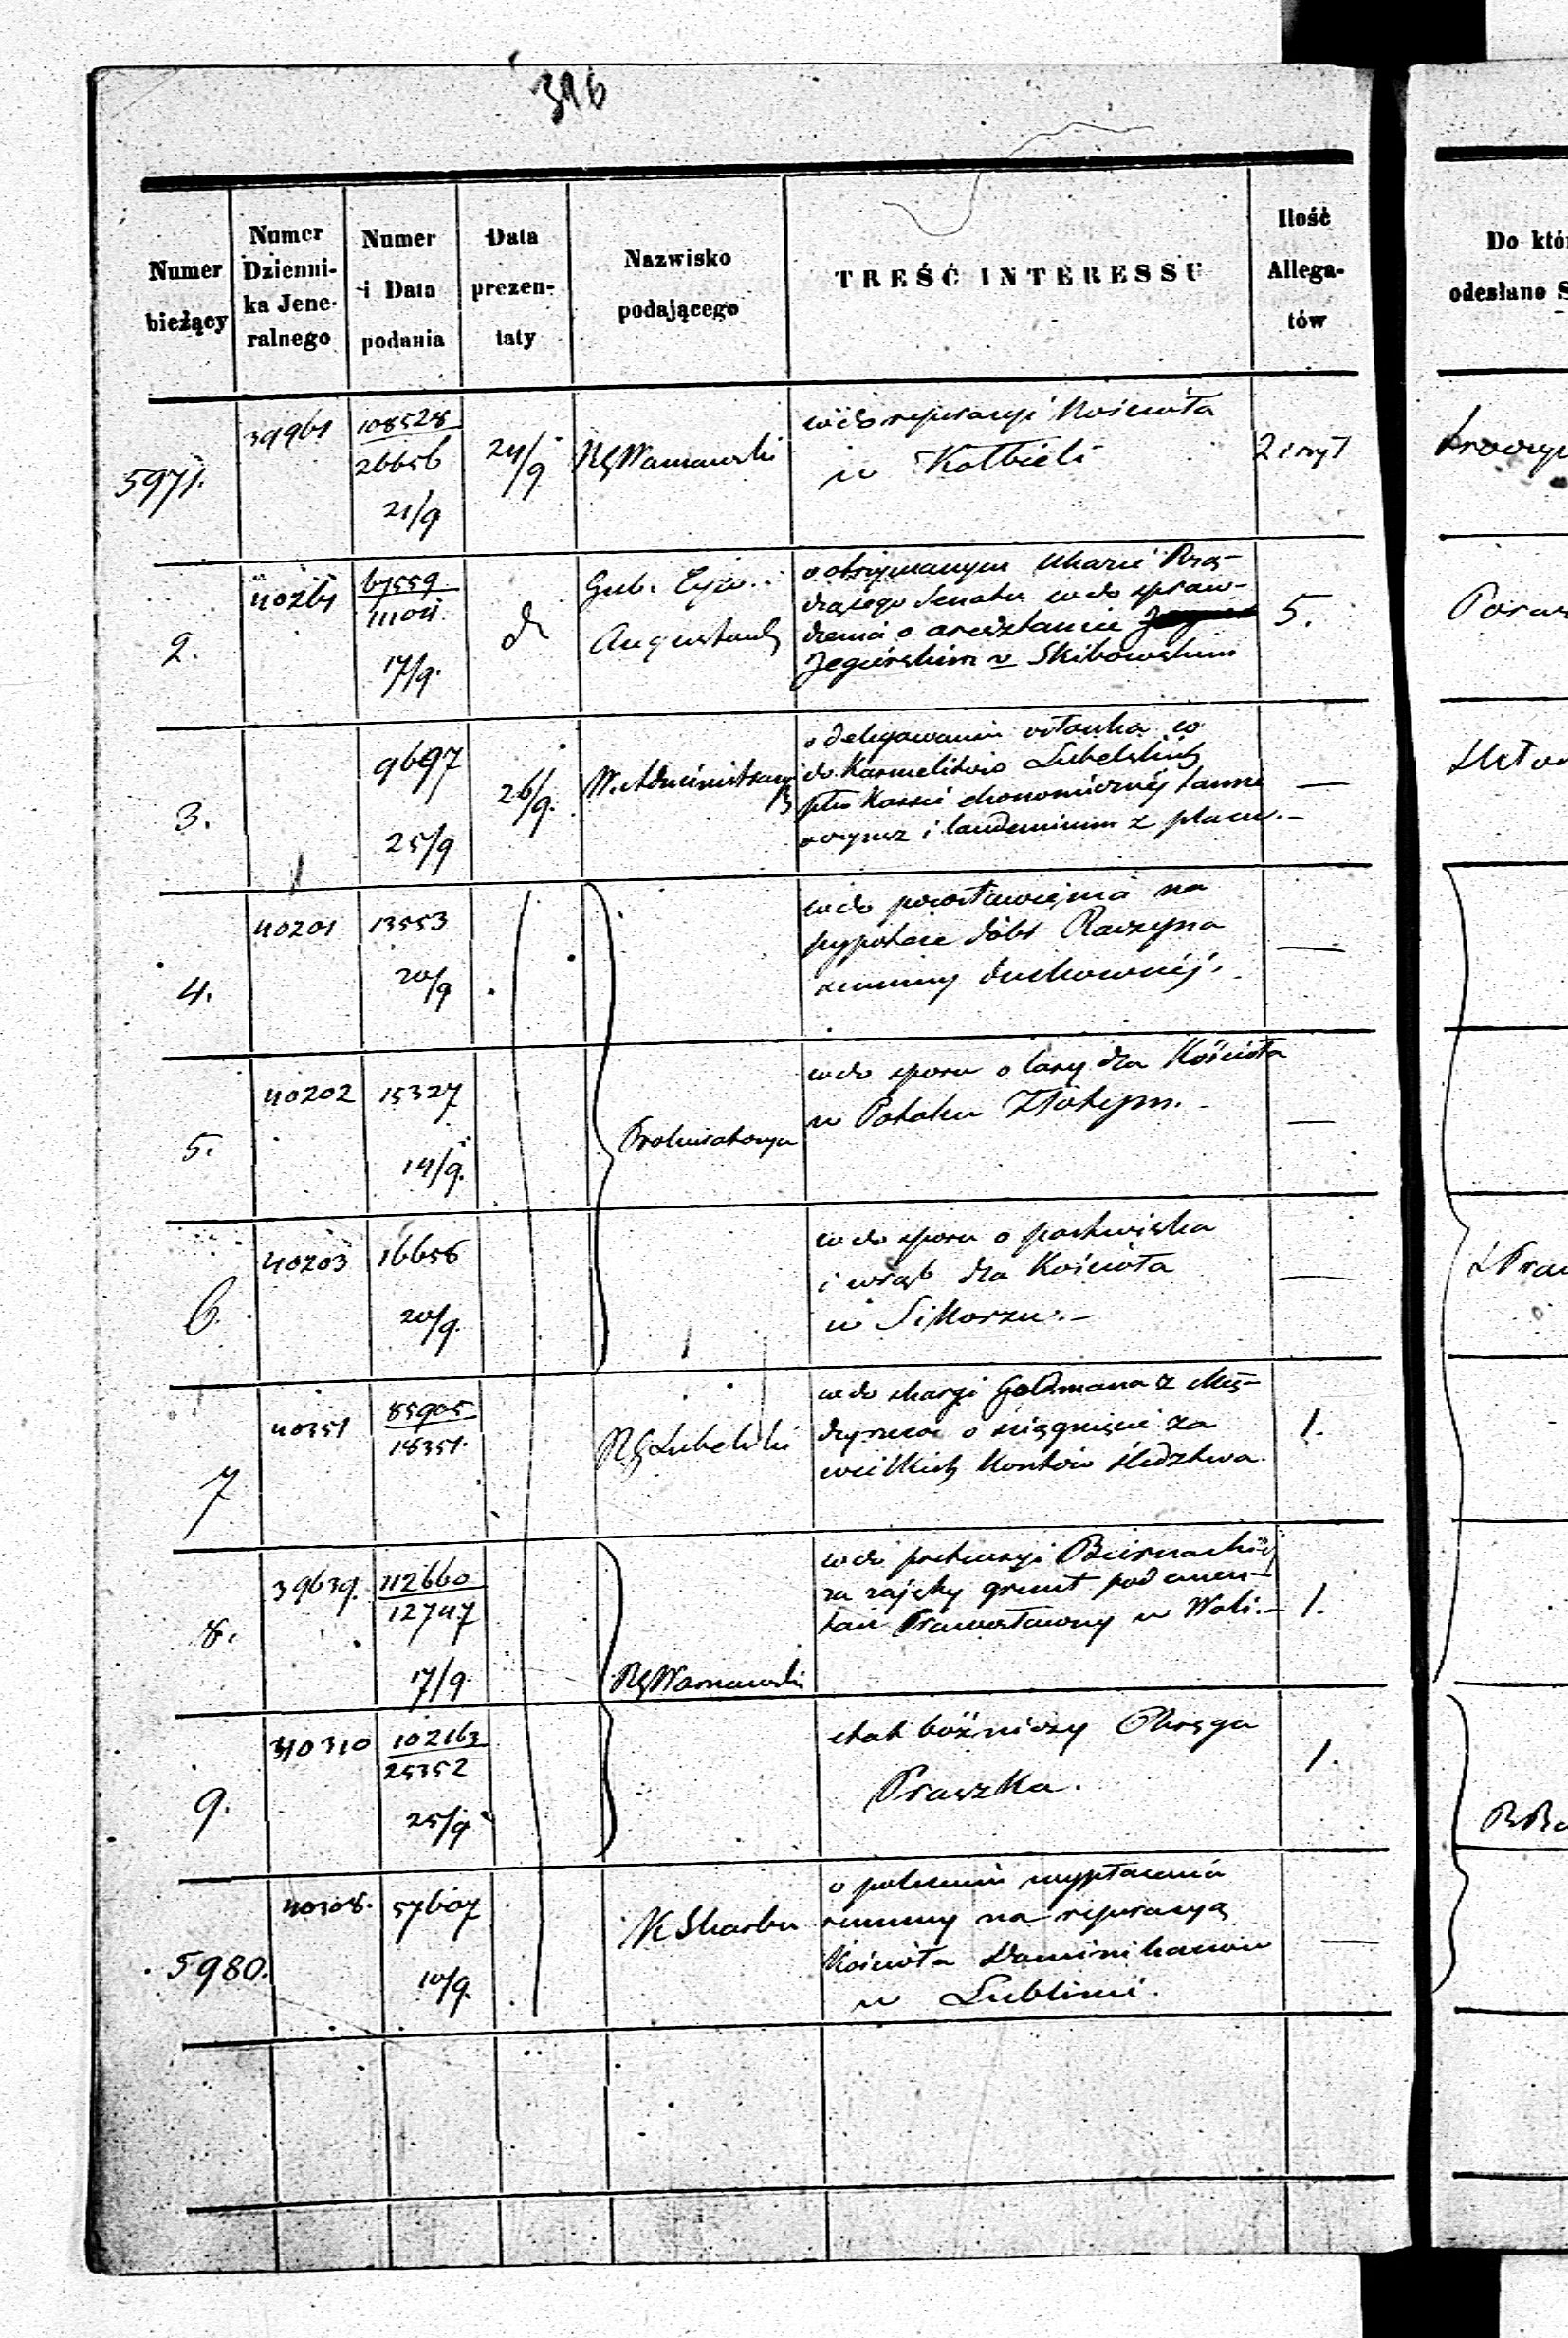 396
Numer bieżący
Numer Dzienni-ka Jene-ralnego
Numer i Data podania
Data prezen-taty
Nazwisko podającego
TREŚĆ INTERESSU
Ilość Allega-tów
Do któ
odesłano S
5971.
39961
108528
26656
21/9
24/9
RG Warszawski
wdo reperacyi Kościoła
w Kołbieli
2
2.
40261
67559
17/9.
Gub. Cyw.
o otrzymanym Ukazie Rzą-
dzącego Senatu wdo spraw-
dzenia o
Jegierskim v Skibowskim
5.
3.
9697
25/9
26/9.
W. Administracyi
o delegowanie członka
do Karmelitów Lubelskich
Kassie ekonomicznéj
czynsz i laudemium z placu.-
—
4.
40201
13553
20/9
wdo pozostawienia na
hypotece dóbr Raszyna
summy duchownéj.
—
5.
40202
15327
14/9.
Prokuratorya
wdo sporu o lasy dla Kościoła
w Potoku Złotym.-
—
6.
40203
16656
20/9.
wdo sporu o pastwiska
i wrąb dla Kościoła
w Sikorzu.-
—
7
40351
85905
18351.
RG Lubelski
wdo skargi Goldmana z Mię-
dzyrzeca o ściągnięcie za
wielkich kosztów śledztwa.
1.
8.
39639.
112660
12747
17/9.
RG Warszawski
wdo pretensyi Biernackiéj
za zajęty grunt pod cmen-
tarz Prawosławny w Woli.-
1.
9.
40310
102163
25352
25/9
etat bóźniczy Okręga
Praszka.
1.
5980.
40308.
57607
10/9.
K Skarbu
o polecenie wypłacenia
summy na reperacyą
Kościoła Dominikanów
w Lublinie.
—